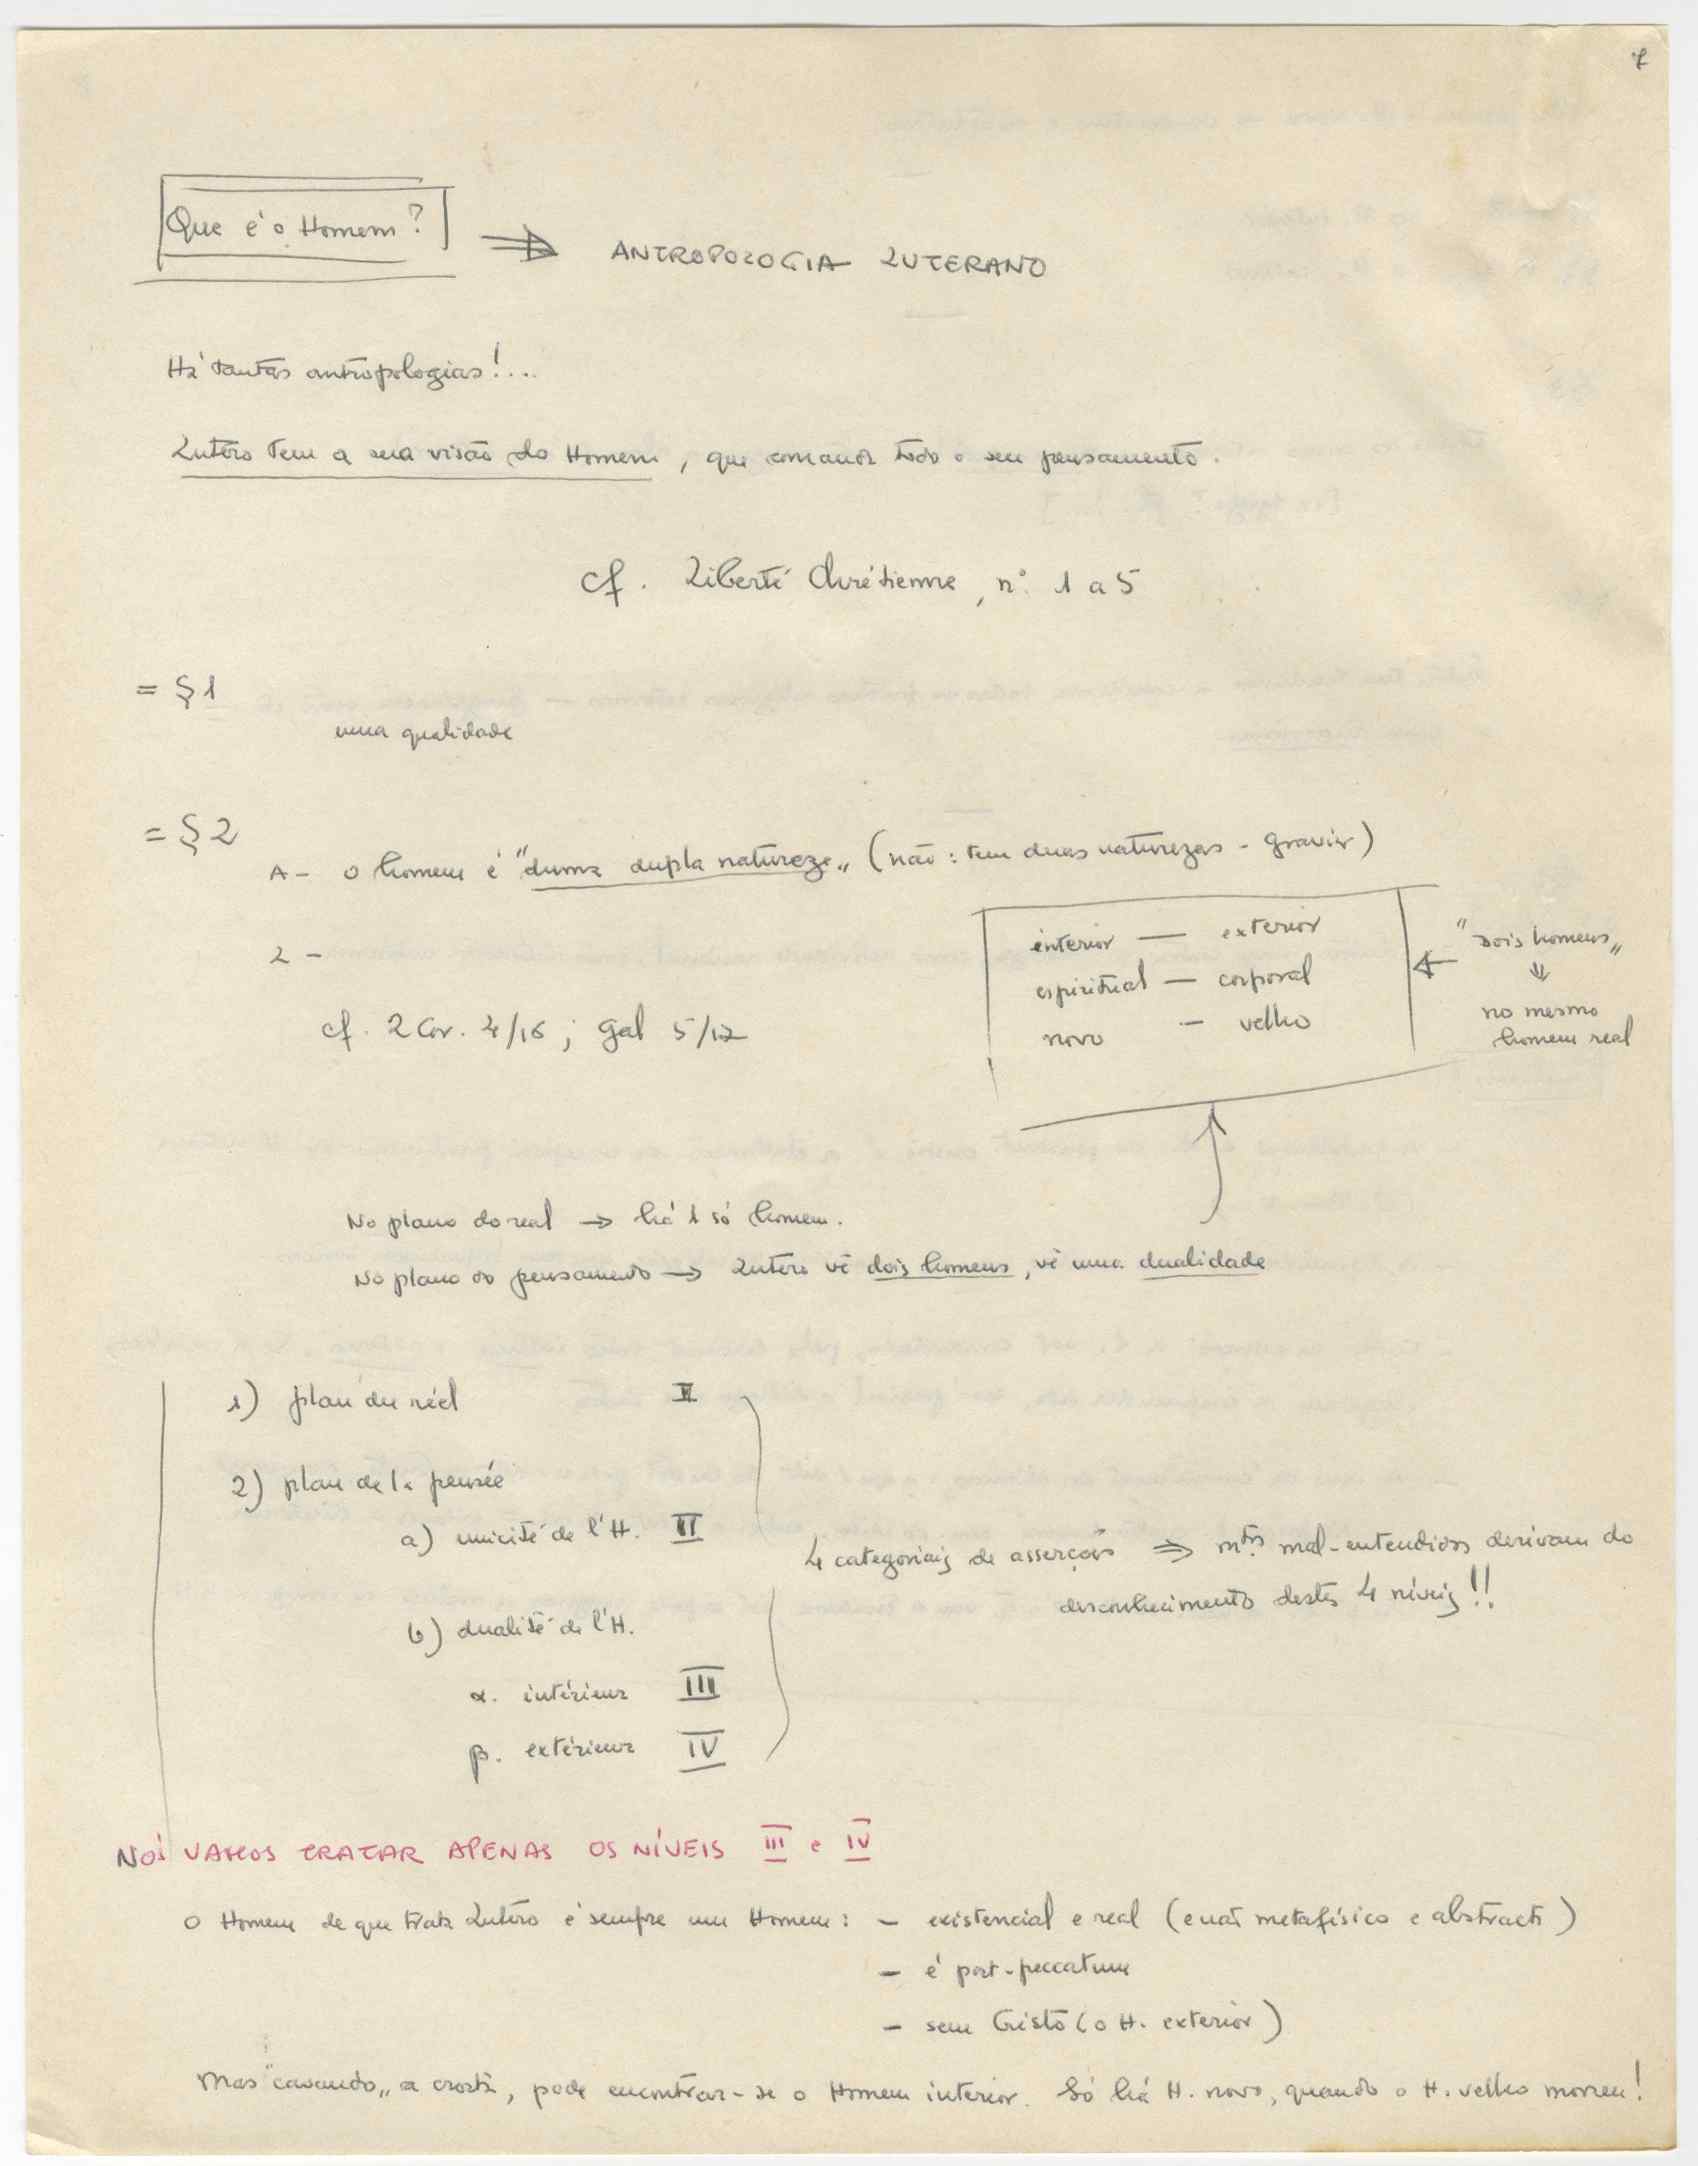 7
Que é o Homem? ⇒ ANTROPOLOGIA LUTERANO
Há tantas antropologias!...
Lutero tem a sua visão do Homem, que comanda todo o seu pensamento.
cf. Liberté Chrétienne, nº 1 a 5
= § 1
uma qualidade
= § 2
A - O homem é "duma dupla natureza„ (não: tem duas naturezas - Gravier)
2 -
interior — exterior
espiritual — corporal
novo — velho
← "Dois homens„
⇓
no mesmo
homem real
cf. 2 Cor. 4/16; Gal 5/17
No plano do real → há 1 só homem.
No plano do pensamento → Lutero vê dois homens, vê uma dualidade
1) plan du réel I
2) plan de la pensée
a) unicité de l'H. II
b) dualité de l'H.
α. intérieur III
β. extérieur IV
4 categorias de asserções ⇒ mtos mal-entendidos derivam do
desconhecimento destes 4 níveis!!
NÓS VAMOS TRATAR APENAS OS NÍVEIS III e IV
O Homem de que trata Lutero é sempre um Homem: - existencial e real (e não metafísico e abstracto)
- é post-peccatum
- sem Cristo (o H. exterior)
Mas "cavando„ a crosta, pode encontrar-se o Homem interior. Só há H. novo, quando o H. velho morreu!